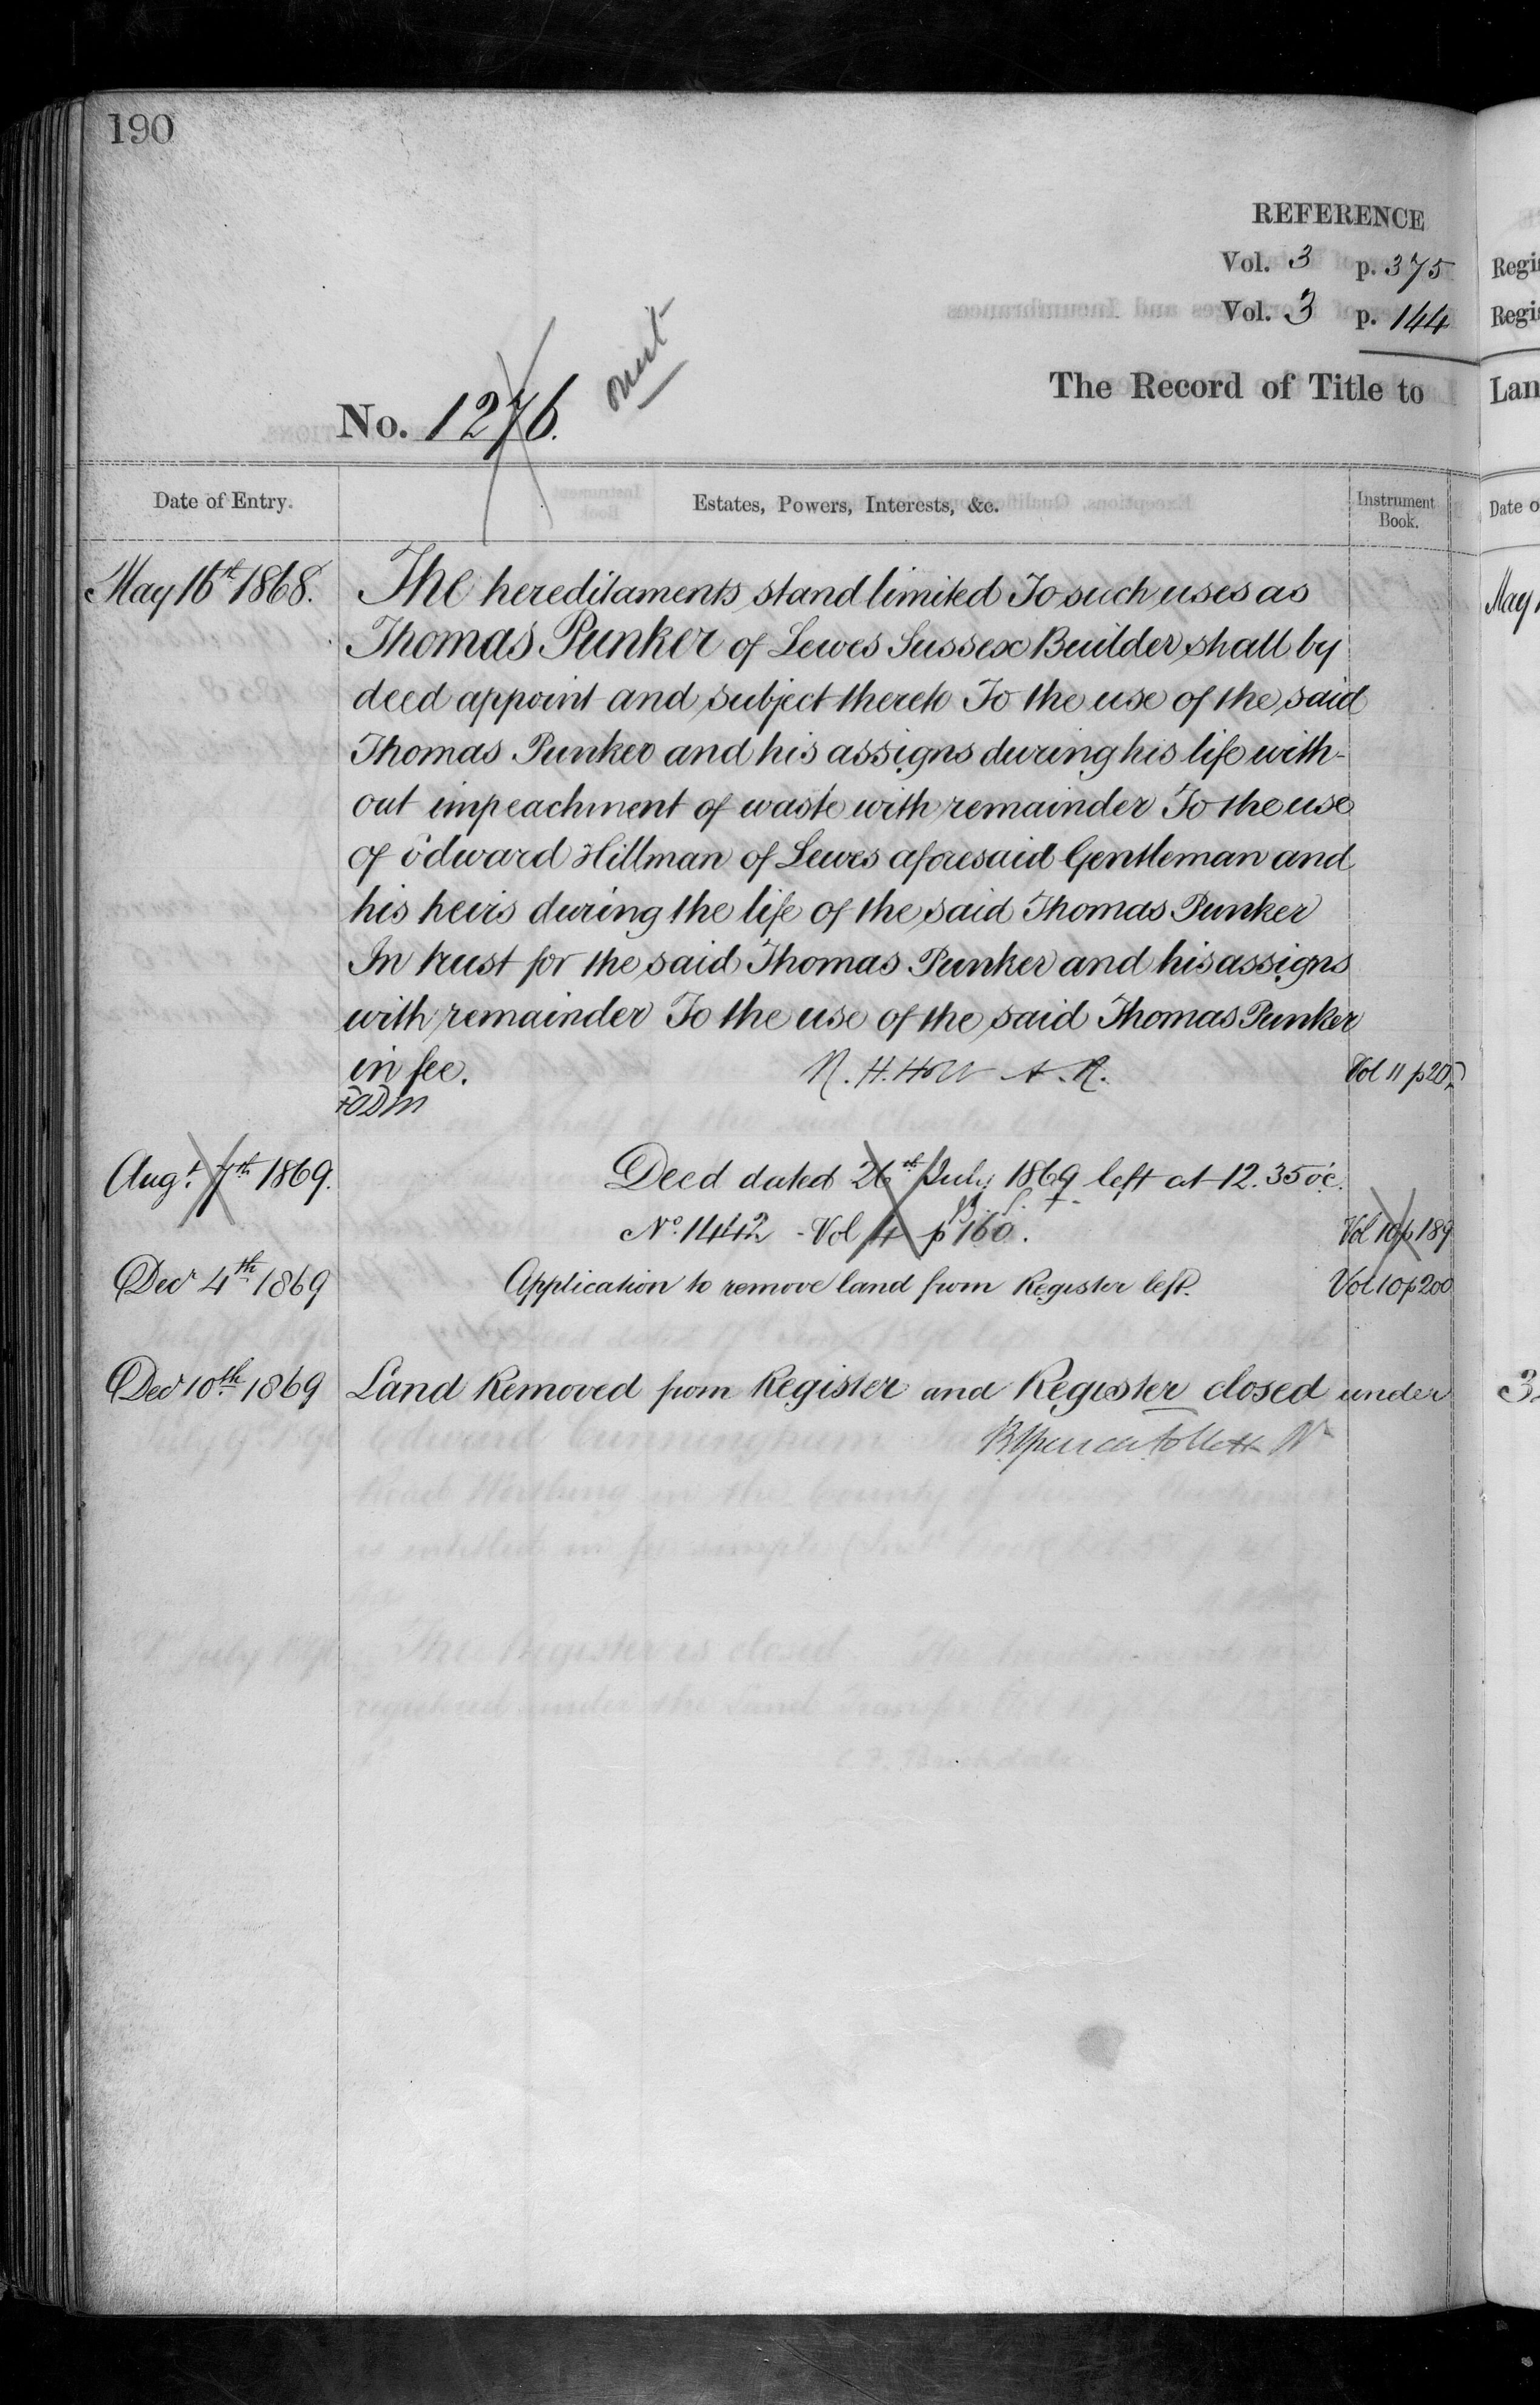 190
REFERENCE
Vol. 3 p. 375
Vol. 3 p. 144
omit
The Record of Title to
No. 1276.
Date of Entry. Estates, Powers, Interests, &c. Instrument Book.
May 16th 1868. The hereditaments stand limited To such uses as
Thomas Punker of Lewes Sussex Builder shall by
deed appoint and subject thereto To the use of the said
Thomas Punker and his assigns during his life with-
out impeachment of waste with remainder To the use
of Edward Hillman of Lewes aforesaid Gentleman and
his heirs during the life of the said Thomas Punker
In trust for the said Thomas Punker and his assigns
with remainder To the use of the said Thomas Punker
in fee. R. H. Holt A. R. Vol 11 p 205
Augt. 7th 1869. Deed dated 26th July 1869 left at 12.35 oc.
No. 1442 - Vol 4 p 160. Vol 10 p 189
Decr 4th 1869 Application to remove land from Register left. Vol 10 p 200
Decr 10th 1869 Land Removed from Register and Register closed under
Regis
Regis
Lan
Date o
May